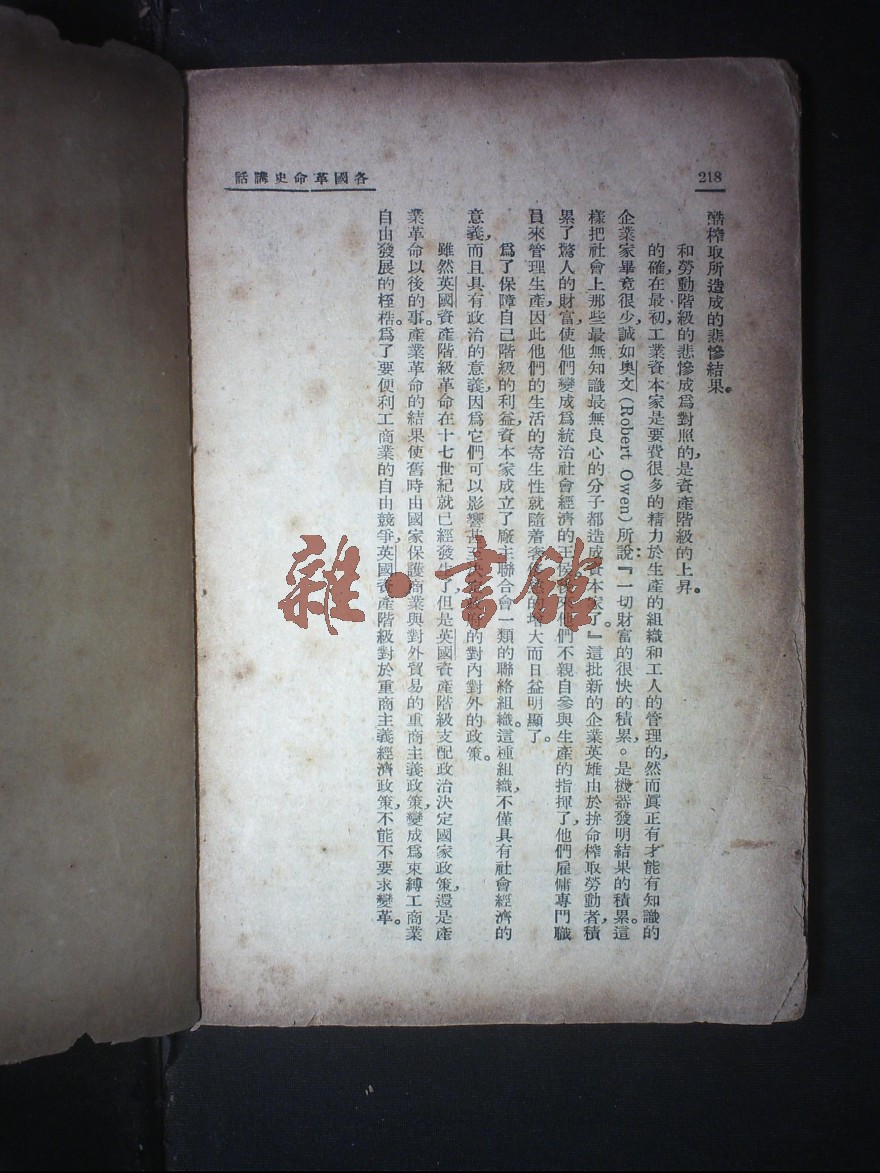 各國革命史講話
218
酷榨取所造成的悲慘結果。
和勞動階級的悲慘成爲對照的,是資產階級的上昇。
的確,在最初,工業資本家是要費很多的精力於生產的組織和工人的管理的,然而眞正有才能有知識的
企業家畢竟很少,誠如奧文(Robert Owen)所說:『一切財富的很快的積累,是機器發明結果的積累。這
樣把社會上那些最無知識最無良心的分子都造成資本家了。』這批新的企業英雄由於拚命榨取勞動者,積
累了驚人的財富,使他們變成爲統治社會經濟的王侯,後來他們不親自參與生產的指揮了,他們雇傭專門職
員來管理生產,因此他們的生活的寄生性就隨着的增大而日益明顯了。
爲了保障自己階級的利益,資本家成立了廠主聯合會一類的聯絡組織。這種組織,不僅具有社會經濟的
意義,而且具有政治的意義,因爲它們可以影響甚至決定政府的對內對外的政策。
雖然英國資產階級革命在十七世紀就已經發生了,但是英國資產階級支配政治決定國家政策,還是產
業革命以後的事。產業革命的結果使舊時由國家保護商業與對外貿易的重商主義政策,變成爲束縛工商業
自由發展的桎梏。爲了要便利工商業的自由競爭,英國資產階級對於重商主義經濟政策,不能不要求變革。
雜·書館